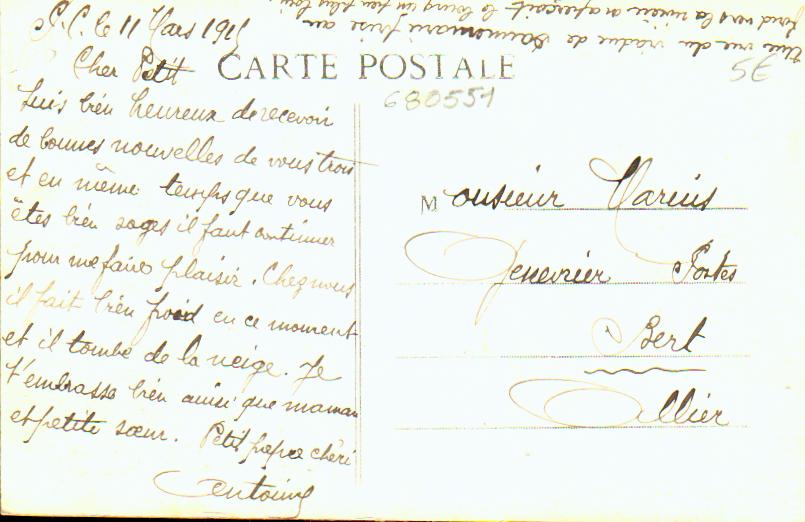 P.C. le 11 Mars 1915
Cher Petit
Suis bien heureux de recevoir
de bonnes nouvelles de vous trois
et en même temps que vous
êtes bien sages il faut continuer
pour me faire plaisir. Chez nous
il fait bien froid en ce moment
et il tombe de la neige. Je
t'embrasse bien ainsi que maman
et petite sœur. Petit papa chéri
Antoine
Une vue du viaduc de prise au
fond vers la on aperçoit le un peu plus loin
CARTE POSTALE
5€
680551
Monsieur Marius
Genevrier Postes
Bert
Allier